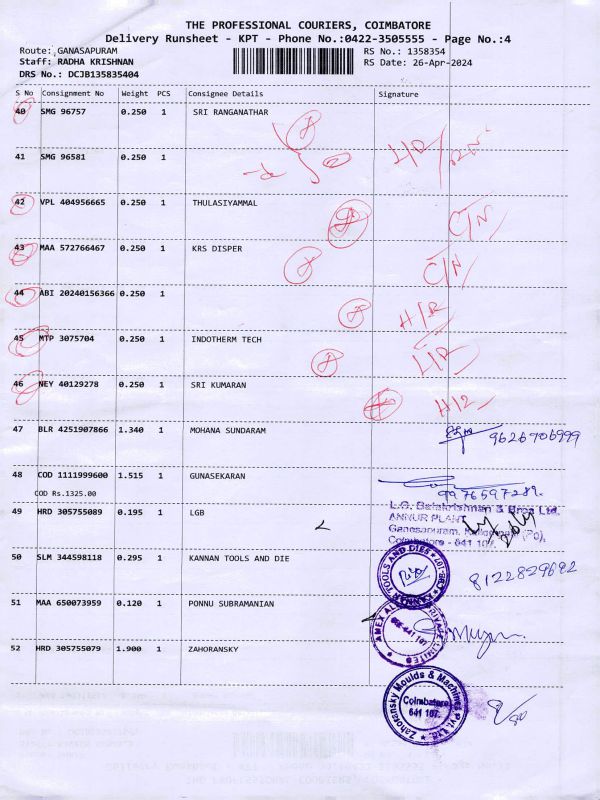 THE PROFESSIONAL COURIERS, COIMBATORE
Delivery Runsheet - KPT - Phone No.:0422-3505555 - Page No.:4
Route: GANASAPURAM RS No.: 1358354
Staff: RADHA KRISHNAN RS Date: 26-Apr-2024
DRS No.: DCJB135835404
S No Consignment No Weight PCS Consignee Details Signature
40 SMG 96757 0.250 1 SRI RANGANATHAR
41 SMG 96581 0.250 1
42 VPL 404956665 0.250 1 THULASIYAMMAL
C/N
43 MAA 572766467 0.250 1 KRS DISPER
C/N
44 ABI 20240156366 0.250 1
45 MTP 3075704 0.250 1 INDOTHERM TECH
46 NEY 40129278 0.250 1 SRI KUMARAN
47 BLR 4251907866 1.340 1 MOHANA SUNDARAM 9626706999
48 COD 1111999600 1.515 1 GUNASEKARAN
COD Rs.1325.00 9976597289
49 HRD 305755089 0.195 1 LGB
L.G. Balakrishnan & Bros Ltd.
ANNUR PLANT
Coimbatore - 641 107.
50 SLM 344598118 0.295 1 KANNAN TOOLS AND DIE
KANNAN TOOLS AND DIES
8122829682
51 MAA 650073959 0.120 1 PONNU SUBRAMANIAN
641 107
52 HRD 305755079 1.900 1 ZAHORANSKY
Zahoransky Moulds & Machines Pvt. Ltd.
Coimbatore
641 107.